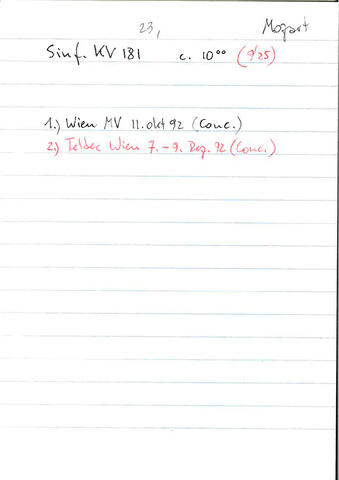 23, Mozart
Sinf. KV 181 c. 10°° (9/25)
1.) Wien MV 11. Okt 92 (Conc.)
2.) Teldec Wien 7. - 9. Dez. 92 (Conc.)